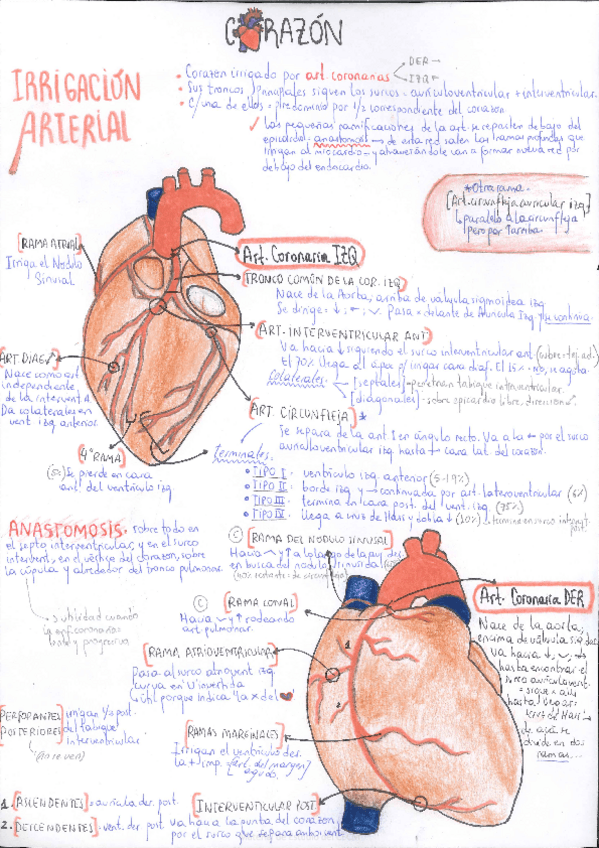 CORAZÓN
IRRIGACIÓN
ARTERIAL
• Corazón irrigado por art. coronarias
DER
IZQ
• Sus troncos principales siguen los surcos = auriculoventricular + interventricular.
• C/una de ellos = predominio por 1/2 correspondiente del corazon
✓ Las pequeñas ramificaciones de la art. se reparten debajo del
epicardio: anastomosis → de esta red salen las ramas profundas que
irrigan al miocardio = y atravesándole van a formar nueva red por
debajo del endocardio.
* Otra rama.
[Art. circunfleja auricular izq]
↳ paralelo a la circunfleja
pero por arriba
[RAMA ATRIAL]
Irriga el Nodulo
Sinusal
Art. Coronaria IZQ
[TRONCO COMÚN DE LA COR. IZQ]
Nace de la Aorta, arriba de válvula sigmoidea izq
Se dirige = Pasa = delante de Auricula Izq y continua.
[ART. INTERVENTRICULAR ANT]
Va hacia ↓ siguiendo el surco interventricular ant
El 70% llega al apex o/ingar cara diaf. El 15% = no, se agota.
Colaterales
[septales] = penetran tabique interventricular.
[diagonales] = sobre epicardio libre, dirección
ART DIAG
Nace como art
independiente,
de la intervent A
Da colaterales en
vent izq anterior
[ART. CIRCUNFLEJA] *
Se separa de la ant S en ángulo recto. Va a la ← por el surco
auriculoventricular izq hasta → cara lat del corazón.
4° RAMA
Se pierde en cara
ant. del ventriculo izq
Terminales.
• TIPO I : ventriculo izq. anterior (5-19%)
• TIPO II : borde izq y → continuada por art. lateroventricular (6%)
• TIPO III = termina en cara post. del vent. izq. (75%)
• TIPO IV = llega a cruz de Hass y dobla ↓ (10%) → termina en surco intervent post.
ANASTOMOSIS. sobre todo en
el septo interventricular, y en el surco
intervent, en el vértice del corazon, sobre
la cúpula y alrededor del tronco pulmonar.
→ sutilidad cuando
la art. coronarias
lenta y progresiva
© [RAMA DEL NODULO SINUSAL]
en busca del nodulo sinusal
© [RAMA CONAL]
Hacia y ↑ rodeando
art pulmonar.
Art. Coronaria DER
Nace de la aorta,
encima de válvula
va hacia
hasta encontrar el
surco auriculovent.
hasta llegar
de aqui se
divide en dos
ramas...
[RAMA ATRIOVENTRICULAR]
Pasa al surco atriovent izq
curva en U invertida
util porque indica "la x del ♥
PERFORANTES
POSTERIORES
irrigan 1/3 post.
del tabique
interventricular
[RAMAS MARGINALES]
Irrigan el ventriculo der.
la + imp.
[art. del margen
agudo.
[INTERVENTRICULAR POST.]
va hacia la punta del corazon,
por el surco que separa ambos vent.
1. [ASCENDENTES] = auricula der. post.
2. [DESCENDENTES] = vent. der. post